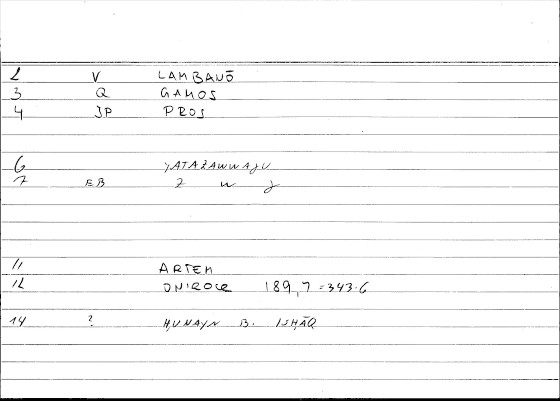 2 V LAMBANŌ
3 Q GAMOS
4 JP PROS
6 YATAZAWWAǦU
7 EB Z W J
11 ARTEM
12 ONIROCR 189,7 = 343.6
14 ? ḤUNAYN B. ISḤĀQ